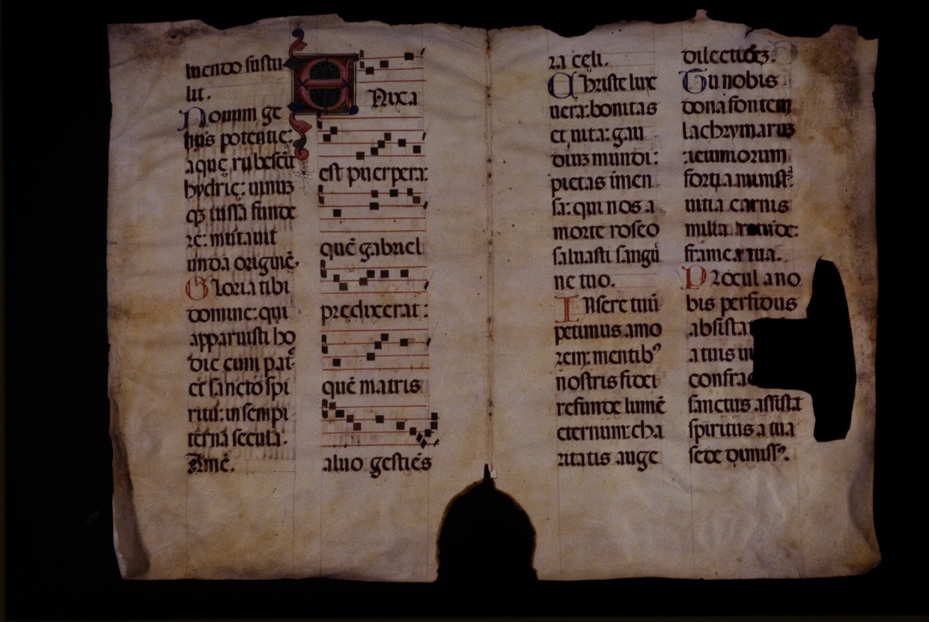 luendo sustu
lit.
Nouum ge
nus potentie:
aque rubescūt
hydrie: uinūq3
q3 iussa funde
re: mutauit
unda originē.
Gloria tibi
domine: qui
apparuisti ho
die cum pat̄
et sancto spi
ritu: in sempi
terna secula.
Amē.
Enixa
est puerpera:
quē gabriel
predixerat:
quē matris
aluo gestiēs
ra celi.
Christe lux
uera: bonitas
et uita: gau
dium mundi:
pietas īmen
sa: qui nos a
morte roseo
saluasti sangū
ne tuo.
Insere tuū
petimus amo
rem: mentibꝰ
nostris fidei
refunde lumē
eternum: cha
ritatis auge
dilectiōēz.
Tu nobis
dona fontem
lachrymarum
ieiuniorum
fortia
uitia carnis
milla
frame tua.
Procul a no
bis perfidus
absista
a tuis ui
confrac
sanctus assista
spiritus a tua
sede dimissꝰ.